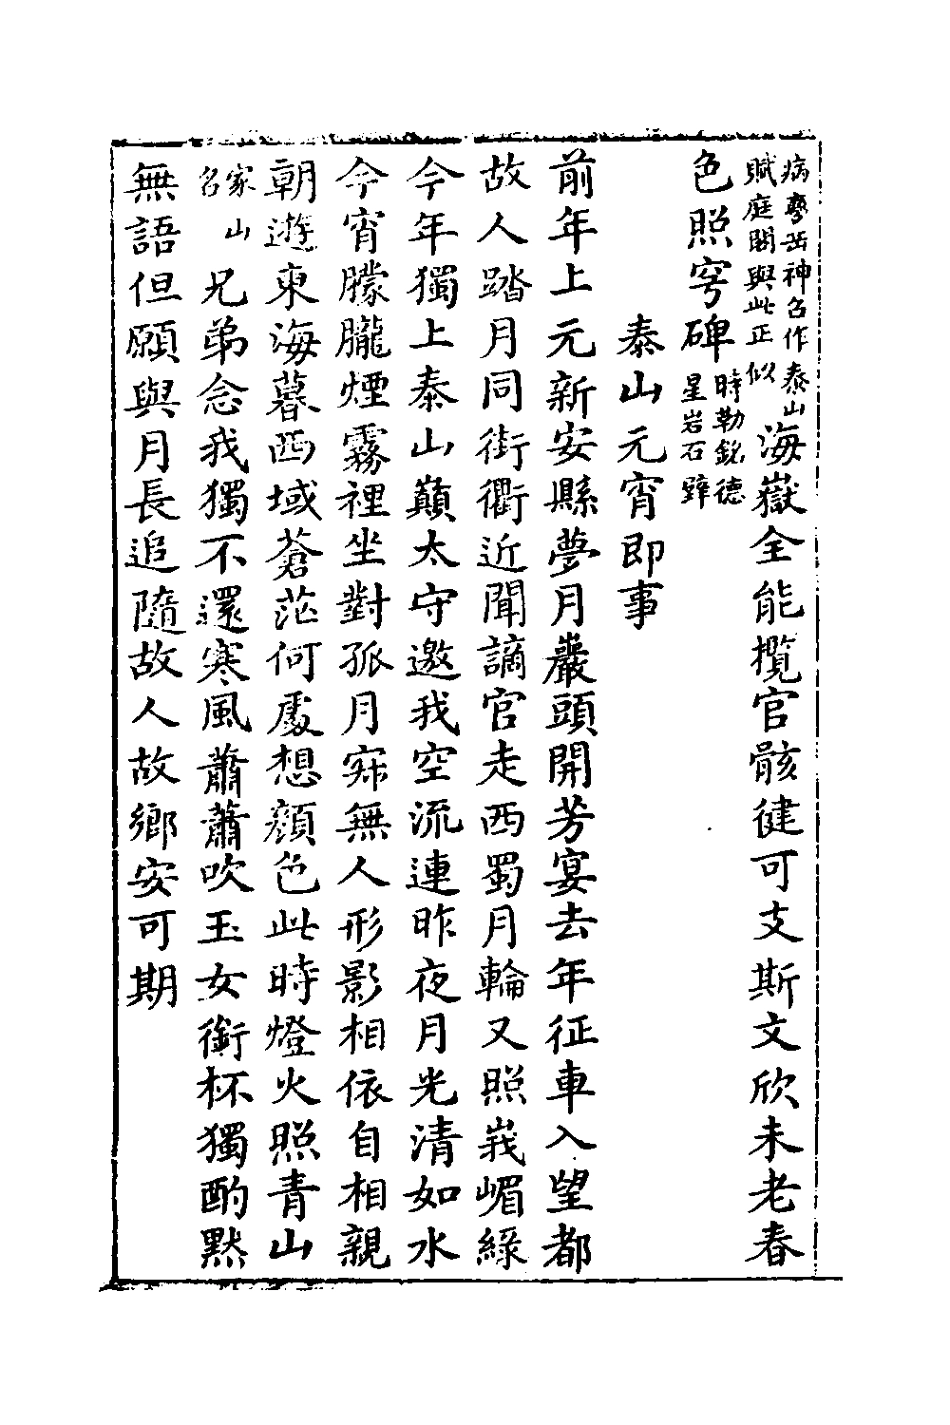 病夢岳神召作泰山
賦庭闕與此正似
海嶽全能攬官骸健可支斯文欣未老春
色照穹碑
時勒銘德
星岩石壁
泰山元宵即事
前年上元新安縣夢月巖頭開芳宴去年征車入望都
故人踏月同街衢近聞謫官走西蜀月輪又照峩嵋綠
今年獨上泰山巔太守邀我空流連昨夜月光清如水
今宵朦朧煙霧裡坐對孤月寂無人形影相依自相親
朝遊東海暮西域蒼茫何處想顏色此時燈火照青山
家山
名
兄弟念我獨不還寒風蕭蕭吹玉女銜杯獨酌默
無語但願與月長追隨故人故鄉安可期